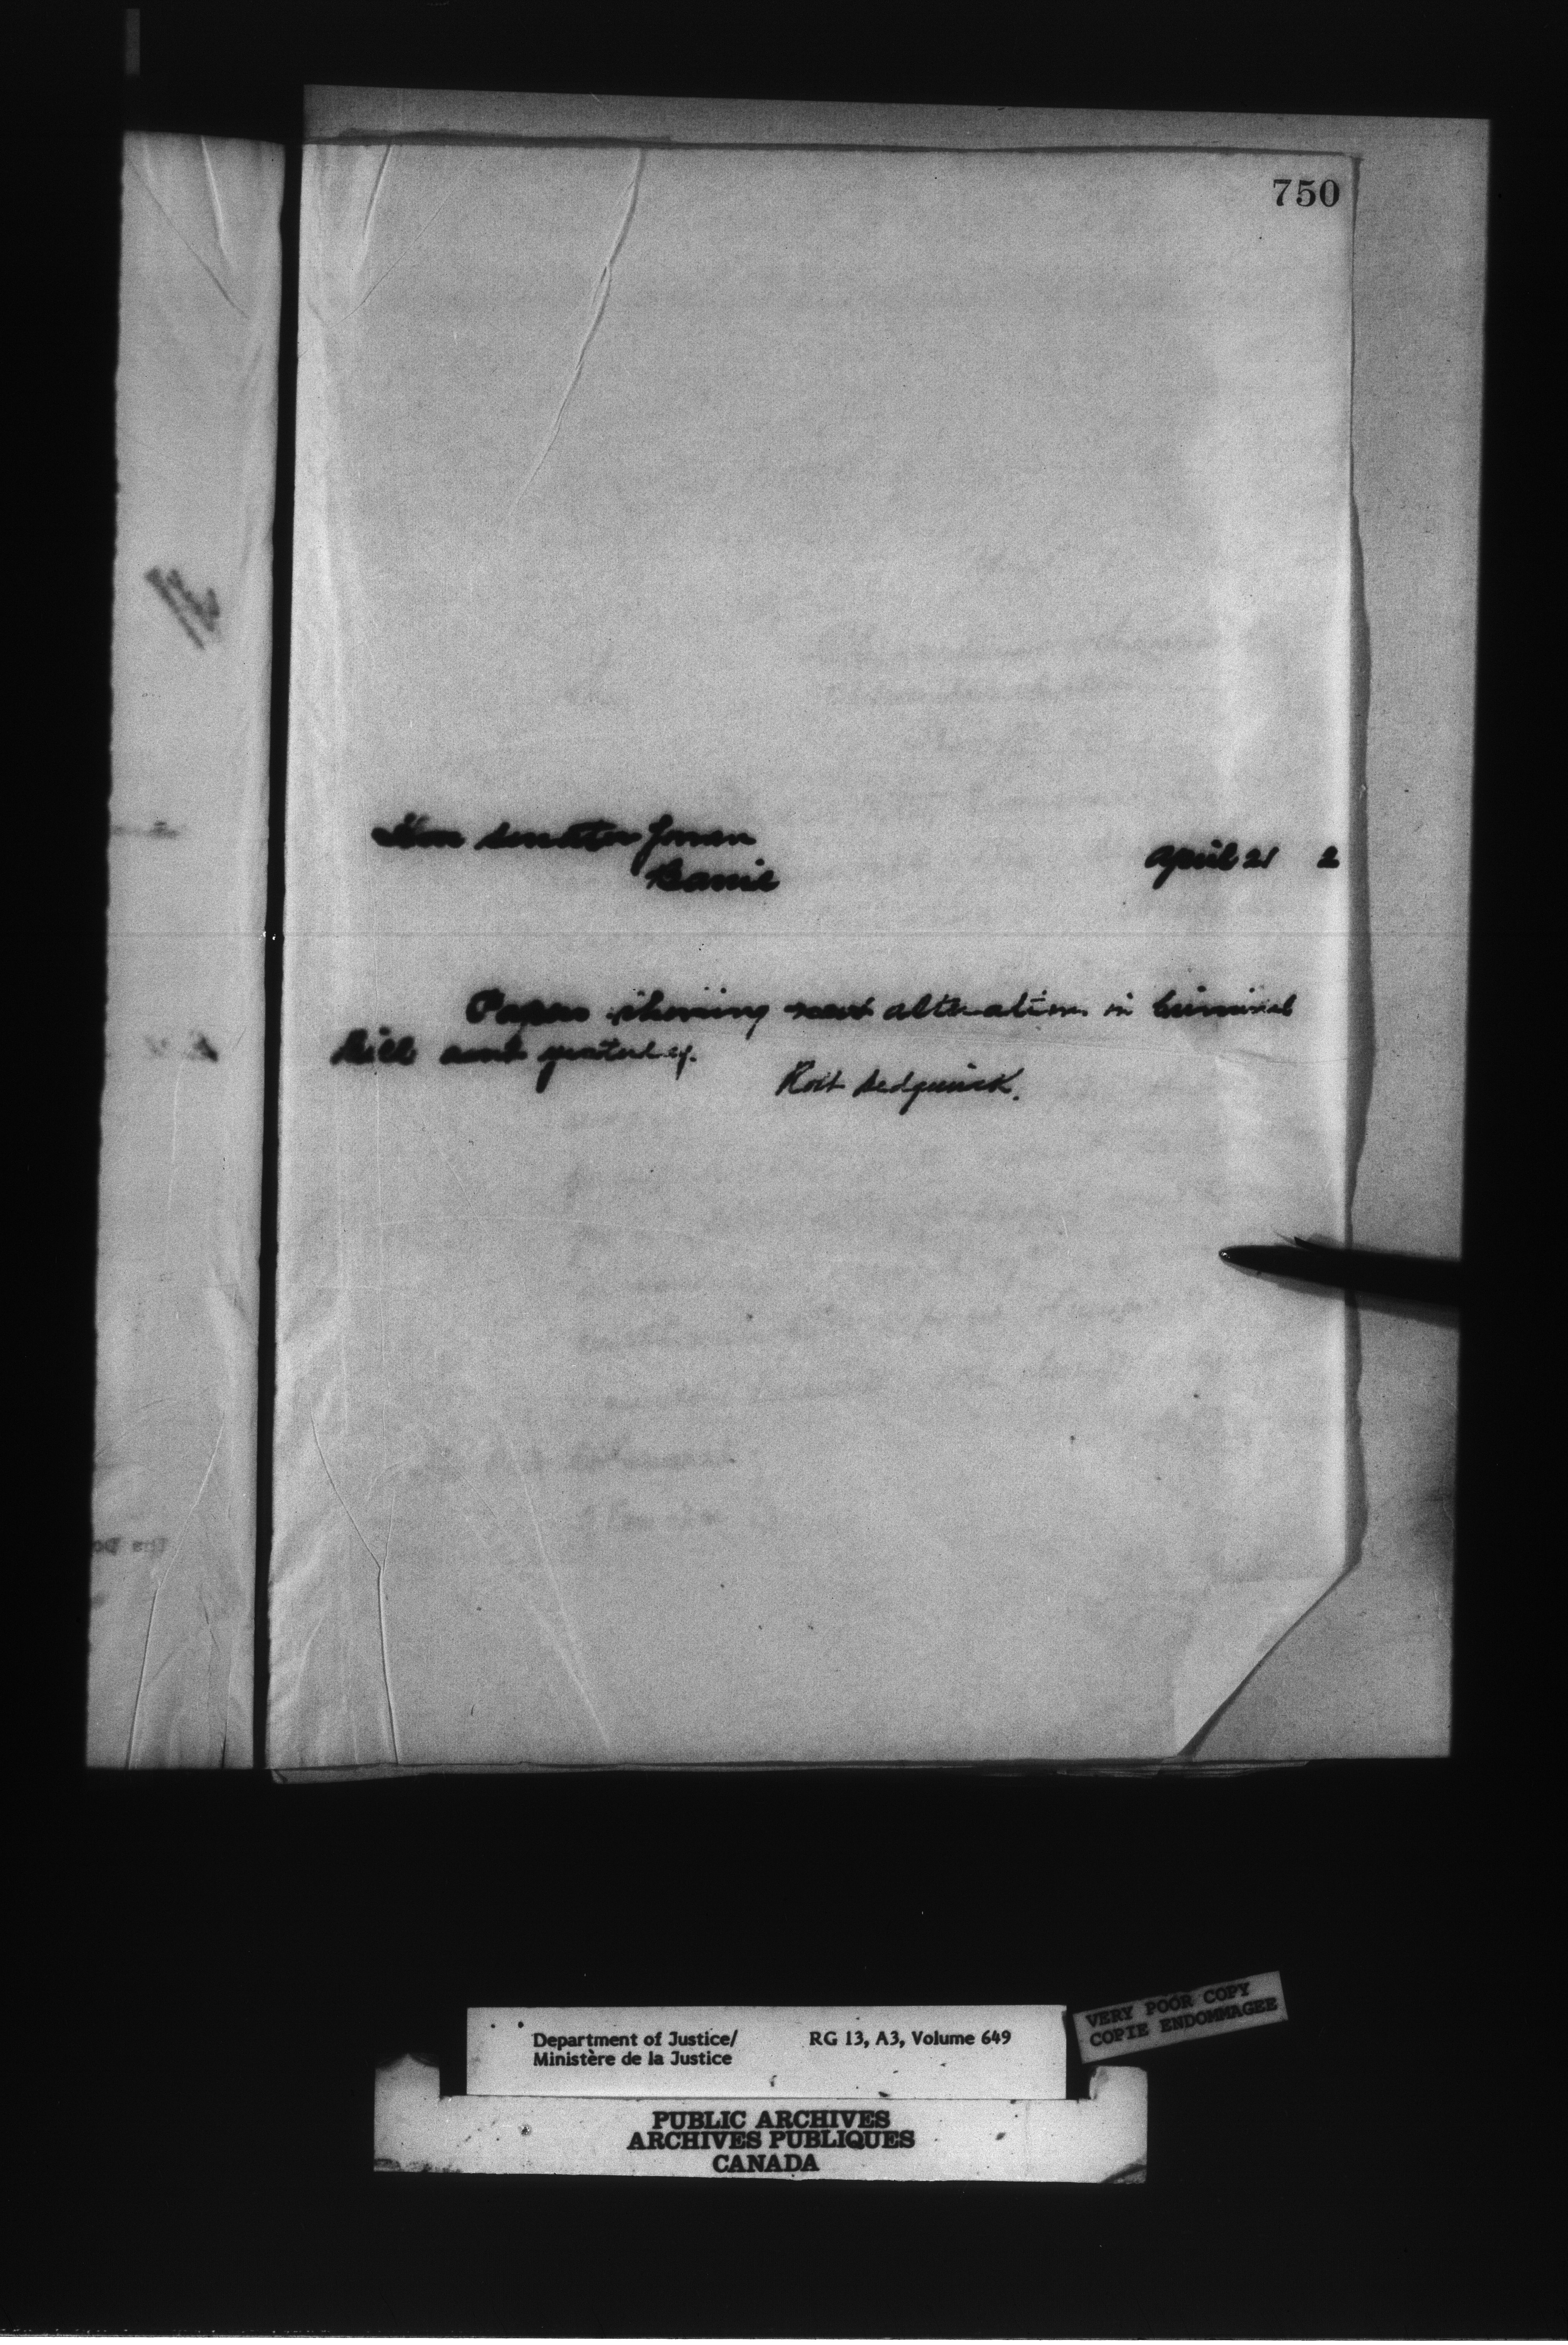 750
Hon Senator Gowan
Barrie
April 21 2
Papers showing next alteration in Criminal
Bill sent yesterday.
Robt Sedgewick.
Department of Justice/
Ministère de la Justice
RG 13, A3, Volume 649
VERY POOR COPY
COPIE ENDOMMAGEE
PUBLIC ARCHIVES
ARCHIVES PUBLIQUES
CANADA